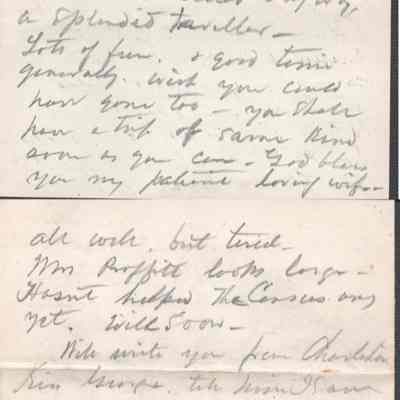 a splendid traveller -
Lots of fun, & good time
generally. wish you could
have gone too - you shall
have a trip of same kind
soon as you can - God bless
you my patient loving wife -
all well, but tired -
Mrs Proffitt looks large -
Hasn't helped The Census any
yet. Will soon -
Will write you from Charleston
Kiss George, tell him I am